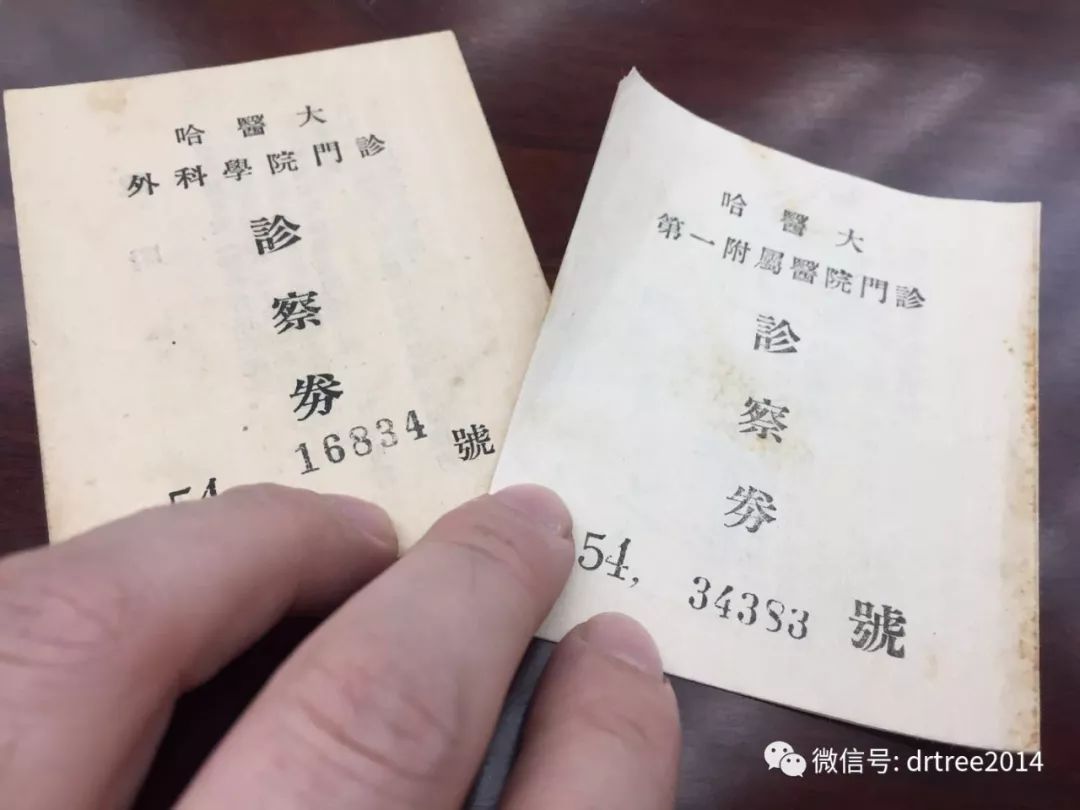 哈醫大
外科學院門診
診
察
券
16834 號
54
哈醫大
第一附屬醫院門診
診
察
券
54, 34383 號
微信号: drtree2014